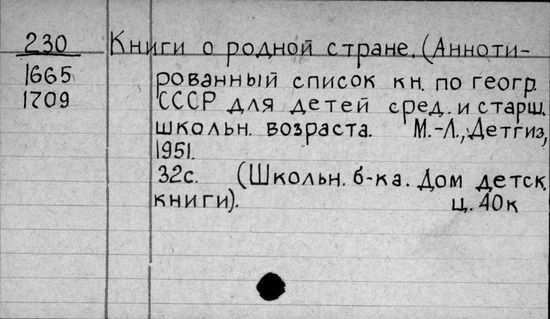 230 Книги о родной стране. (Анноти-
1665 рованный список кн. по геогр.
1709 СССР для детей сред. и старш.
школьн. возраста. М.-Л., Детгиз,
1951.
32с. (Школьн. б-ка. Дом детск.
книги). ц. 40к